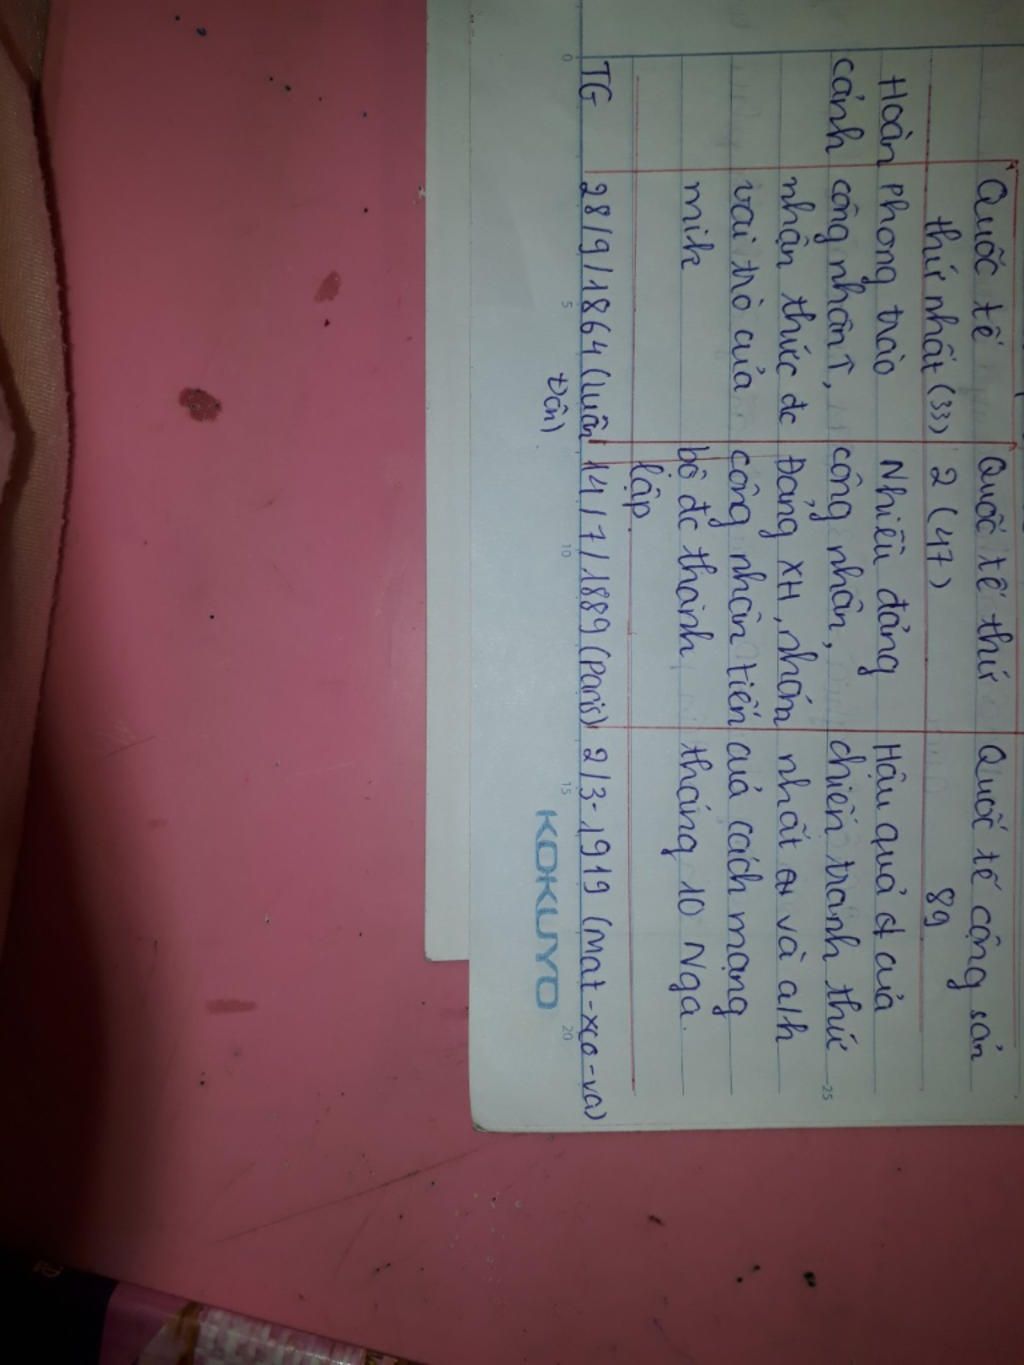 Quốc tế thứ nhất (33)
Quốc tế thứ 2 (47)
Quốc tế cộng sản 89
Hoàn cảnh
phong trào
công nhân ↑,
nhận thức đc
vai trò của
mih
Nhiều đảng
công nhân,
Đảng XH, nhóm
công nhân tiến
bộ đc thành
lập
Hậu quả của
chiến tranh thứ
nhất và a/h
của cách mạng
tháng 10 Nga.
TG
28/9/1864 (Luân Đôn)
14/7/1889 (Paris)
2/3-1919 (Mat-xco-va)
0 5 10 15 20 25
KOKUYO